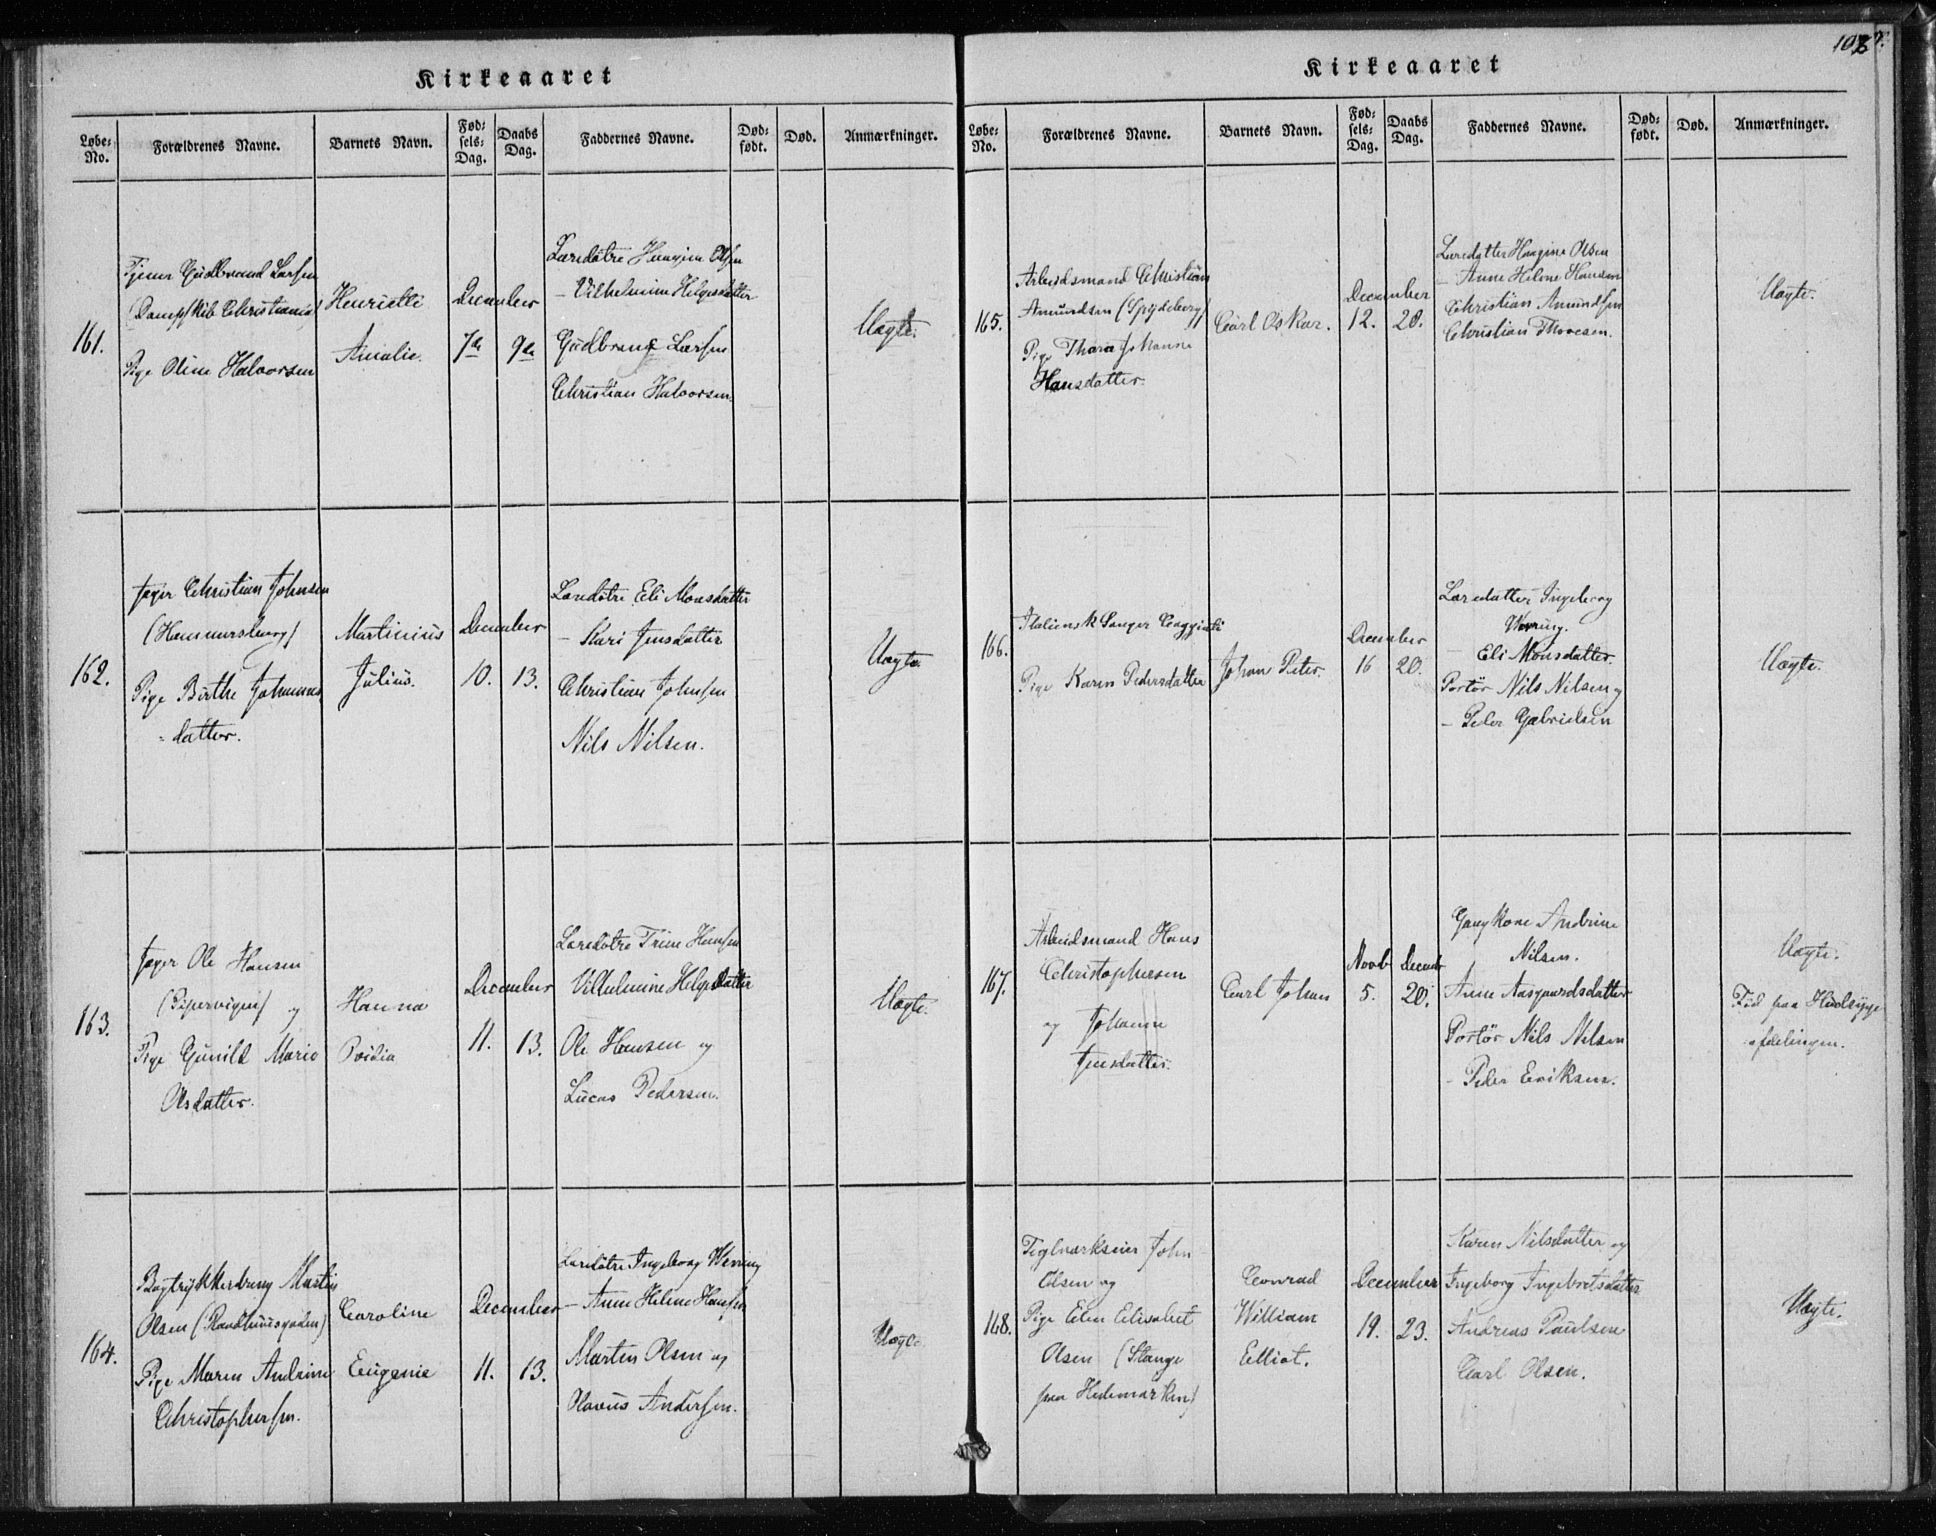 107.
Kirkeaaret
Løbe-No. Forældrenes Navne. Barnets Navn. Fød-sels-Dag. Daabs Dag. Faddernes Navne. Død-født. Død. Anmærkninger.
161.
Tjener Gudbrand Larsen
(Dampskib Christiania)
Pige Oline Halvorsen
Henriette
Amalie.
December
7de 9de
Laredøtre Haagine Olsen
- Vilhelmine Helgesdatter
Gudbrand Larsen
Christian Halvorsen
Uægte.
162.
Jæger Christian Johnsen
(Hammersborg)
Pige Birthe Johannes
-datter.
Martinius
Julius.
December
10. 13.
Laredøtre Eli Monsdatter
- Kari Jensdatter
Christian Johnsen
Nils Nilsen.
Uægte.
163.
Jæger Ole Hansen
(Pipervigen) og
Pige Gunild Marie
Olsdatter.
Hanna
December
11. 13.
Laredøtre Trine Hansen
Vilhelmine Helgesdatter
Ole Hansen og
Lucas Pedersen.
Uægte.
164.
Bogtrykkerdreng Martin
Olsen (Raadhuusgaden)
Pige Maren Andrine
Christophersen.
Caroline
Eugenie
December
11. 13.
Laredøtre Ingeborg Werring
- Anne Helene Hansen
Martin Olsen og
Olavus Andersen.
Uægte.
Kirkeaaret
Løbe-No. Forældrenes Navne. Barnets Navn. Fød-sels-Dag. Daabs Dag. Faddernes Navne. Død-født. Død. Anmærkninger.
165.
Arbeidsmand Christian
Amundsen (Spydeberg)
Pige Thara Johanne
Hansdatter.
Carl Oskar.
December
12. 20.
Laredatter Haagine Olsen
- Anne Helene Hansen
Christian Amundsen
Christian Thoresen.
Uægte.
166.
Italiensk Sanger
Pige Karen Pedersdatter
Johan Peter.
December
16 20.
Laredatter Ingeborg
Werring.
- Eli Monsdatter.
Portør Nils Nilsen og
- Peder Gabrielsen
Uægte.
167.
Arbeidsmand Hans
Christophersen
og Johanne
Jensdatter.
Carl Johan
Novb Decemb
5. 20.
Gangkone Andrine
Nilsen.
Anne Aasgaardsdatter
Portør Nils Nilsen
- Peder Eriksen.
Uægte.
Fød paa Hudsyge
afdelingen.
168.
Teglværkseier John
Olsen og
Pige Elen Elisabet
Olsen (Stange
paa Hedemarken)
Conrad
William
Elliot.
December
19. 23.
Karen Nilsdatter og
Ingeborg Ingebretsdatter
Andreas Paulsen
Carl Olsen.
Uægte.